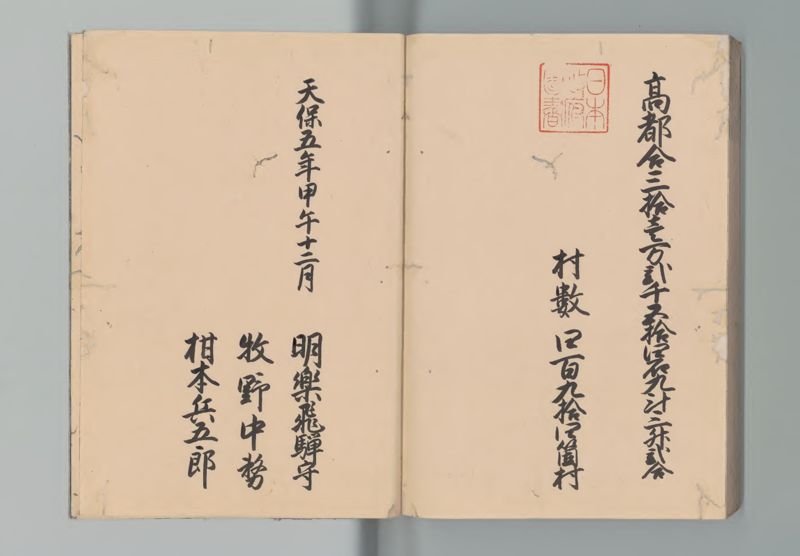 高都合三拾壱万弐千五拾四石九斗三升弐合
村數 四百九拾四箇村
日本
政府
図書
天保五年甲午十二月
明樂飛騨守
牧野中務
柑本兵五郎